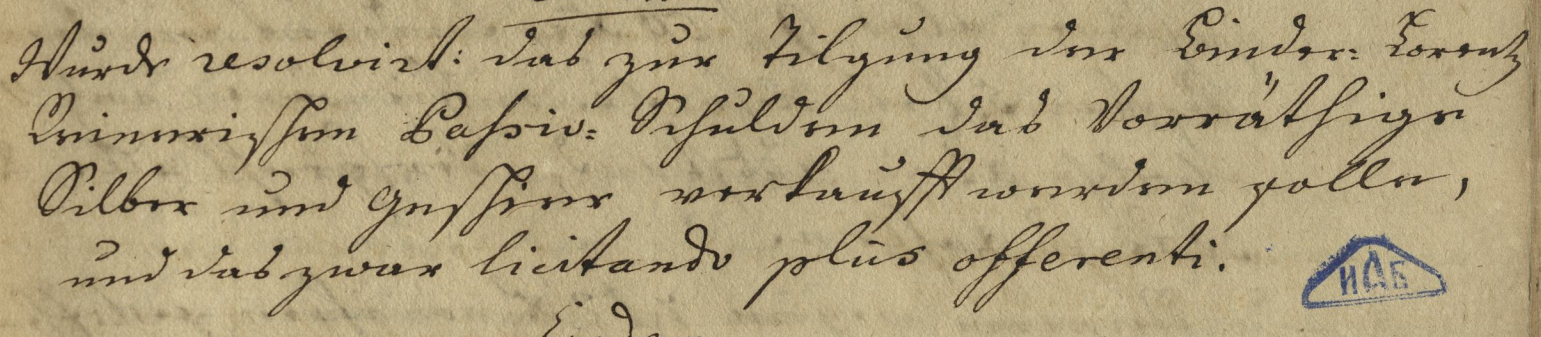 Wurde resolvirt: das zur Tilgung der Binder: Lorentz
Reinerischen Passiv= Schulden das Vorräthige
Silber und Geschirr verkaufft werden solle,
und das zwar licitando plus offerenti.
ИАБ